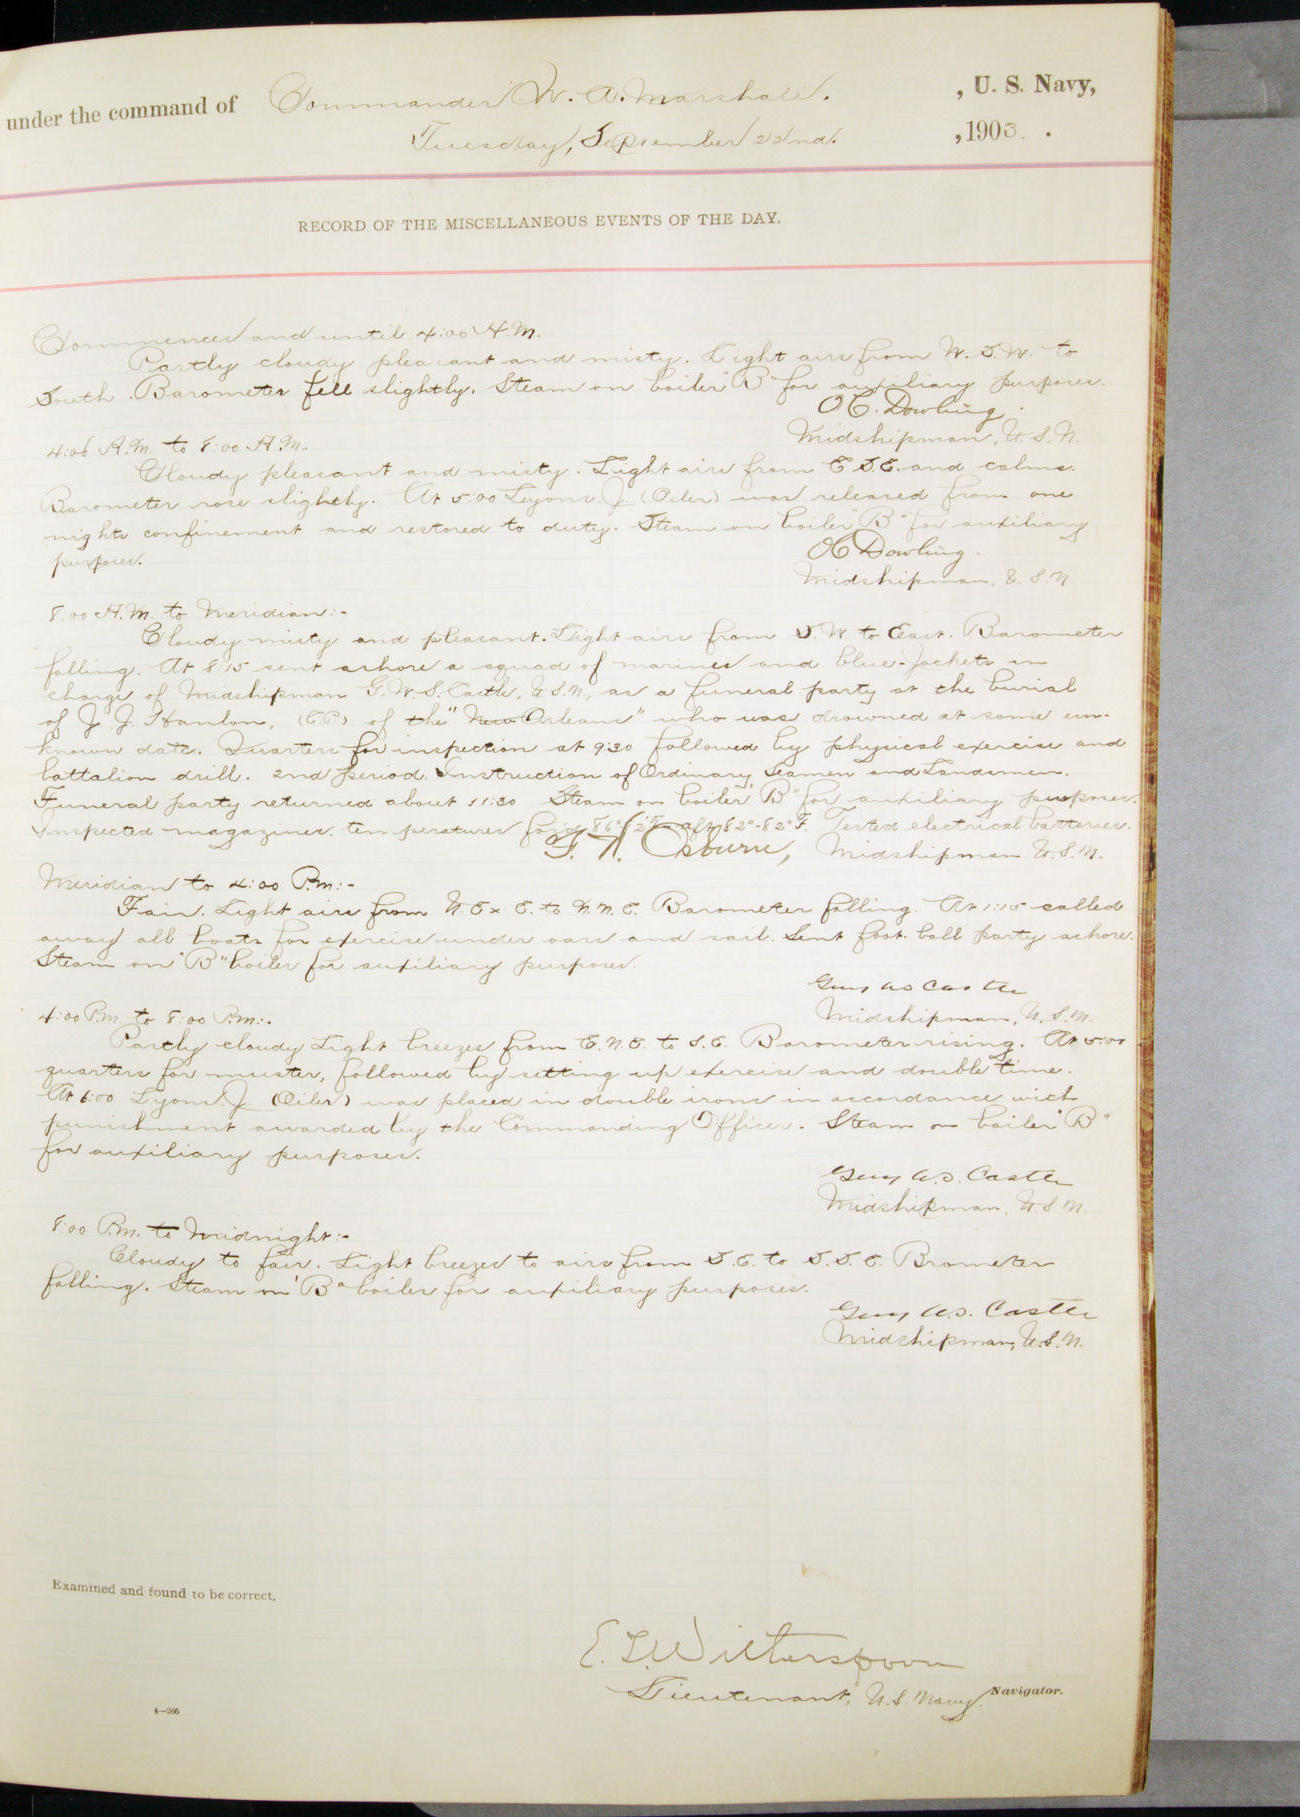 under the command of Commander W. A. Marshall. , U. S. Navy,
Tuesday, September 22nd. , 1903.
RECORD OF THE MISCELLANEOUS EVENTS OF THE DAY.
Commences and until 4:00 A.M.
Partly cloudy pleasant and misty. Light airs from W.S.W. to
South. Barometer fell slightly. Steam on boiler "B" for auxiliary purposes.
O C. Dowling.
Midshipman, U.S.N.
4:00 A.M. to 8:00 A.M.
Cloudy pleasant and misty. Light airs from E S.E. and calms.
Barometer rose slightly. At 5:00 Luyons. J. (Oiler) was released from one
nights confinement and restored to duty. Steam on boiler "B" for auxiliary
purposes.
O C Dowling.
Midshipman, U.S.N.
8:00 A.M. to Meridian:-
Cloudy misty and pleasant. Light airs from S.W to East. Barometer
falling. At 8:15 sent ashore a squad of marines and blue-jackets in
charge of Midshipman G.W.S. Castle, U.S.N., as a funeral party at the burial
of J. J. Hanlon, (C.P.) of the "New Orleans" who was drowned at some un-
known date. Quarters for inspection at 9:30 followed by physical exercise and
battalion drill. 2nd period. Instruction of Ordinary Seamen and Landsmen.
Funeral party returned about 11:30 Steam on boiler "B" for auxiliary purposes.
Inspected magazines. temperatures for'd 86° aft 82°-82° F. Tested electrical batteries.
F. H. Osburn, Midshipman U.S.N.
Meridian to 4:00 P.M:-
Fair. Light airs from N.E x E. to N.N.E. Barometer falling. At 1:15 called
away all boats for exercise under oars and sail. Sent foot-ball party ashore.
Steam on "B" boiler for auxiliary purposes.
Guy W S Castle
Midshipman, U.S.N.
4:00 P.M. to 8:00 P.M:-
Partly cloudy Light breezes from E.N.E. to S.E. Barometer rising. At 5:00
quarters for muster, followed by setting up exercise and double time.
At 6:00 Lyons. J. (Oiler) was placed in double irons in accordance with
punishment awarded by the Commanding Officer. Steam on boiler "B"
for auxiliary purposes.
Guy W.S. Castle
Midshipman, U.S.N.
8:00 P.M. to Midnight:-
Cloudy to fair. Light breezes to airs from S.E. to S.S.E. Brometer
falling. Steam on "B" boiler for auxiliary purposes.
Guy W.S. Castle
Midshipman, U.S.N.
Examined and found to be correct.
E. L. Witherspoon
Lieutenant, U.S. Navy. Navigator.
4—266